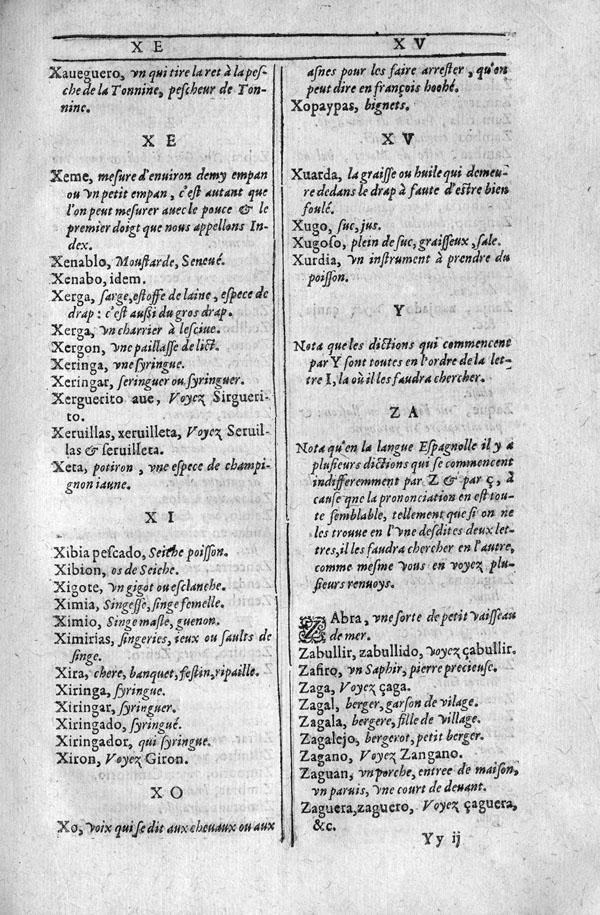 X E
Xaueguero, vn qui tire la ret à la pes-
che de la Tonnine, pescheur de Ton-
nine.
X E
Xeme, mesure d'enuiron demy empan
ou vn petit empan, c'est autant que
l'on peut mesurer auec le pouce & le
premier doigt que nous appellons In-
dex.
Xenablo, Moustarde, Seneué.
Xenabo, idem.
Xerga, sarge, estoffe de laine, espece de
drap: c'est aussi du gros drap.
Xerga, vn charrier à lesciue.
Xergon, vne paillasse de lict.
Xeringa, vne syringue.
Xeringar, seringuer ou syringuer.
Xerguerito aue, Voyez Sirgueri-
to.
Xeruillas, xeruilleta, Voyez Seruil-
las & seruilleta.
Xeta, potiron, vne espece de champi-
gnon iaune.
X I
Xibia pescado, Seiche poisson.
Xibion, os de Seiche.
Xigote, vn gigot ou esclanche.
Ximia, Singesse, singe femelle.
Ximio, Singe masle, guenon.
Ximirias, singeries, ieux ou saults de
singe.
Xira, chere, banquet, festin, ripaille.
Xiringa, syringue.
Xiringar, syringuer.
Xiringado, syringué.
Xiringador, qui syringue.
Xiron, Voyez Giron.
X O
Xo, voix qui se dit aux cheuaux ou aux
X V
asnes pour les faire arrester, qu'on
peut dire en françois hoohé.
Xopaypas, bignets.
X V
Xuarda, la graisse ou huile qui demeu-
re dedans le drap à faute d'estre bien
foulé.
Xugo, suc, jus.
Xugoso, plein de suc, graisseux, sale.
Xurdia, vn instrument à prendre du
poisson.
Y
Nota que les dictions qui commencent
par Y sont toutes en l'ordre de la let-
tre I, là où il les faudra chercher.
Z A
Nota qu'en la langue Espagnolle il y a
plusieurs dictions qui se commencent
indifferemment par Z & par ç, à
cause que la prononciation en est tou-
te semblable, tellement que si on ne
les trouue en l'vne desdites deux let-
tres, il les faudra chercher en l'autre,
comme mesme vous en voyez plu-
sieurs renuoys.
ZAbra, vne sorte de petit vaisseau
de mer.
Zabullir, zabullido, voyez çabullir.
Zafiro, vn Saphir, pierre precieuse.
Zaga, Voyez çaga.
Zagal, berger, garson de vilage.
Zagala, bergere, fille de village.
Zagalejo, bergerot, petit berger.
Zagano, Voyez Zangano.
Zaguan, vn porche, entree de maison,
vn paruis, vne court de deuant.
Zaguera, zaguero, Voyez çaguera,
&c.
Yy ij